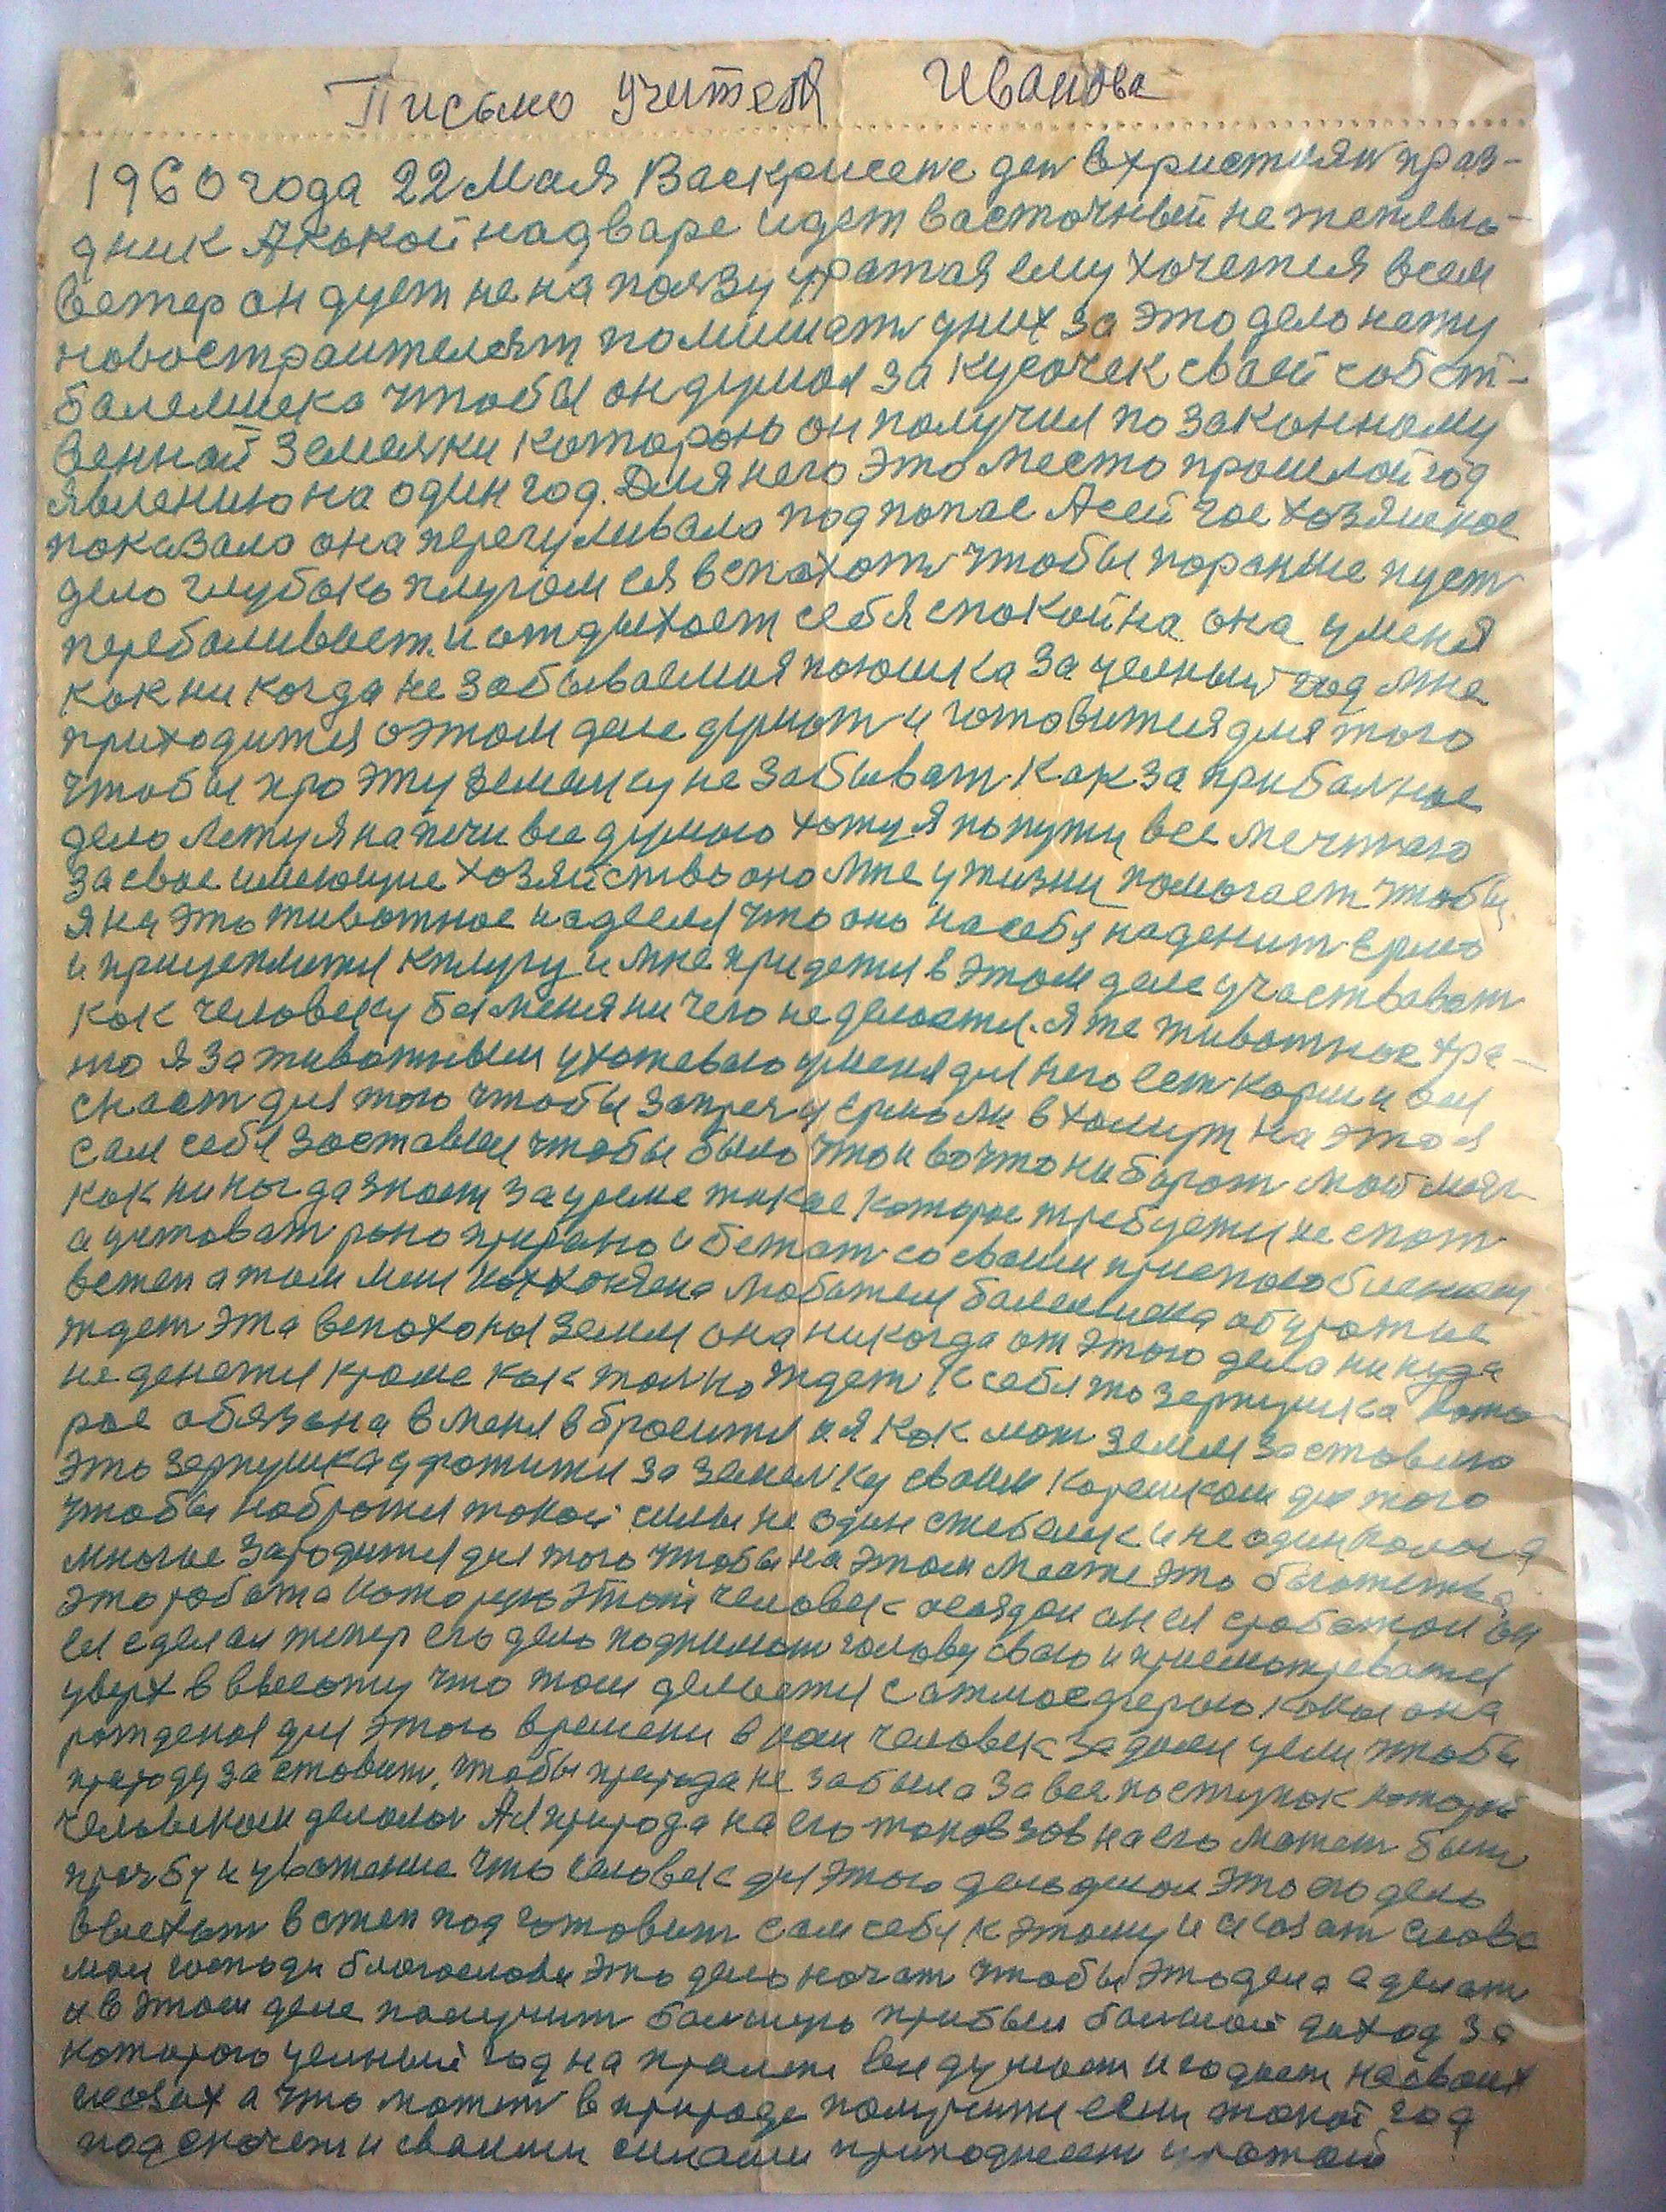 Письмо Учителя Иванова
1960 года 22 Мая Васкрисене ден в християн праз-
дник Какой на дваре идет васточный не теплый
Ветер он дует не на ползу уражая ему хочетея всем
новостраителям памишать у них за это дело нету
балелшека чтобы он думал за кусочек сваей собст-
венной земелки которою он получил по законному
явлению на один год. Для него это место прошлой год
показало она перегуливала под попас А сейчас хозяское
дело глубоко плугом ея вспахать чтобы пораньше пуст
перебаливает. и отдыхает себя спокойна она у меня
как ни когда не забываемая полоска за целный год мне
приходится о этом деле думать и готовится для того
чтобы про эту землицу не забывать. Как за прибалное
дело Лежу я на печи все думаю хожу я по пути все мечтаю
за свое имеющие хозяйство оно мне у жизни помогает чтобы
я на это животное надеелся что оно на себя наденит ермо
и прицепится к плугу и мне придется в этом деле участвавать
как человеку без меня ни чего не делается. Я же животное хра-
ню я за животным ухажеваю у меня для него ест корм и ом
снаст для того чтобы запреч у ермо или в хомут на это я
сам себя заставил чтобы было что и во что ни
как никогда знает за уреме такое которое требуется не спать
а уставать рано прирано и бежать со своим приспособлением
встеп а там меня как хозяена любителя балелшика об урожае
ждет эта вспаханая земля она никогда от этого дела никуда
не денется кроме как толко ждет к себе то зернушка кото-
рое обязана в меня вброситься и я как мать земля заставлю
это зернушка уродится за земелку своим корешком для того
чтобы набратся такой силы не один стебелик и не один колос а
многие зародится для того чтобы на этом месте это богатства
это работа которую этот человек своядом он ея сработал он
ея сделал тепер его дело поднимать голову сваю и присматреватся
уверх в высоту что там делается с атмосферою какая она
рожденая для этого времени в нем человек задачи цели чтобы
природу заставить, чтобы природа не забыла за вся поступок которой
человеком делался А природа на его таков зов на его может быть
прозбу и уважение что человек для этого дела думал это его дело
выехать в степ под готовит сам себя к этому и сказать слова
мои господи благослови это дело начать чтобы это дела сделать
и в этом деле получить балшую прибыл балшой даход за
которого целный год на пролет все думает и гадает на своих
весах а что может в природе получится если такой год
подскочет и своими силами приподнесет урожай